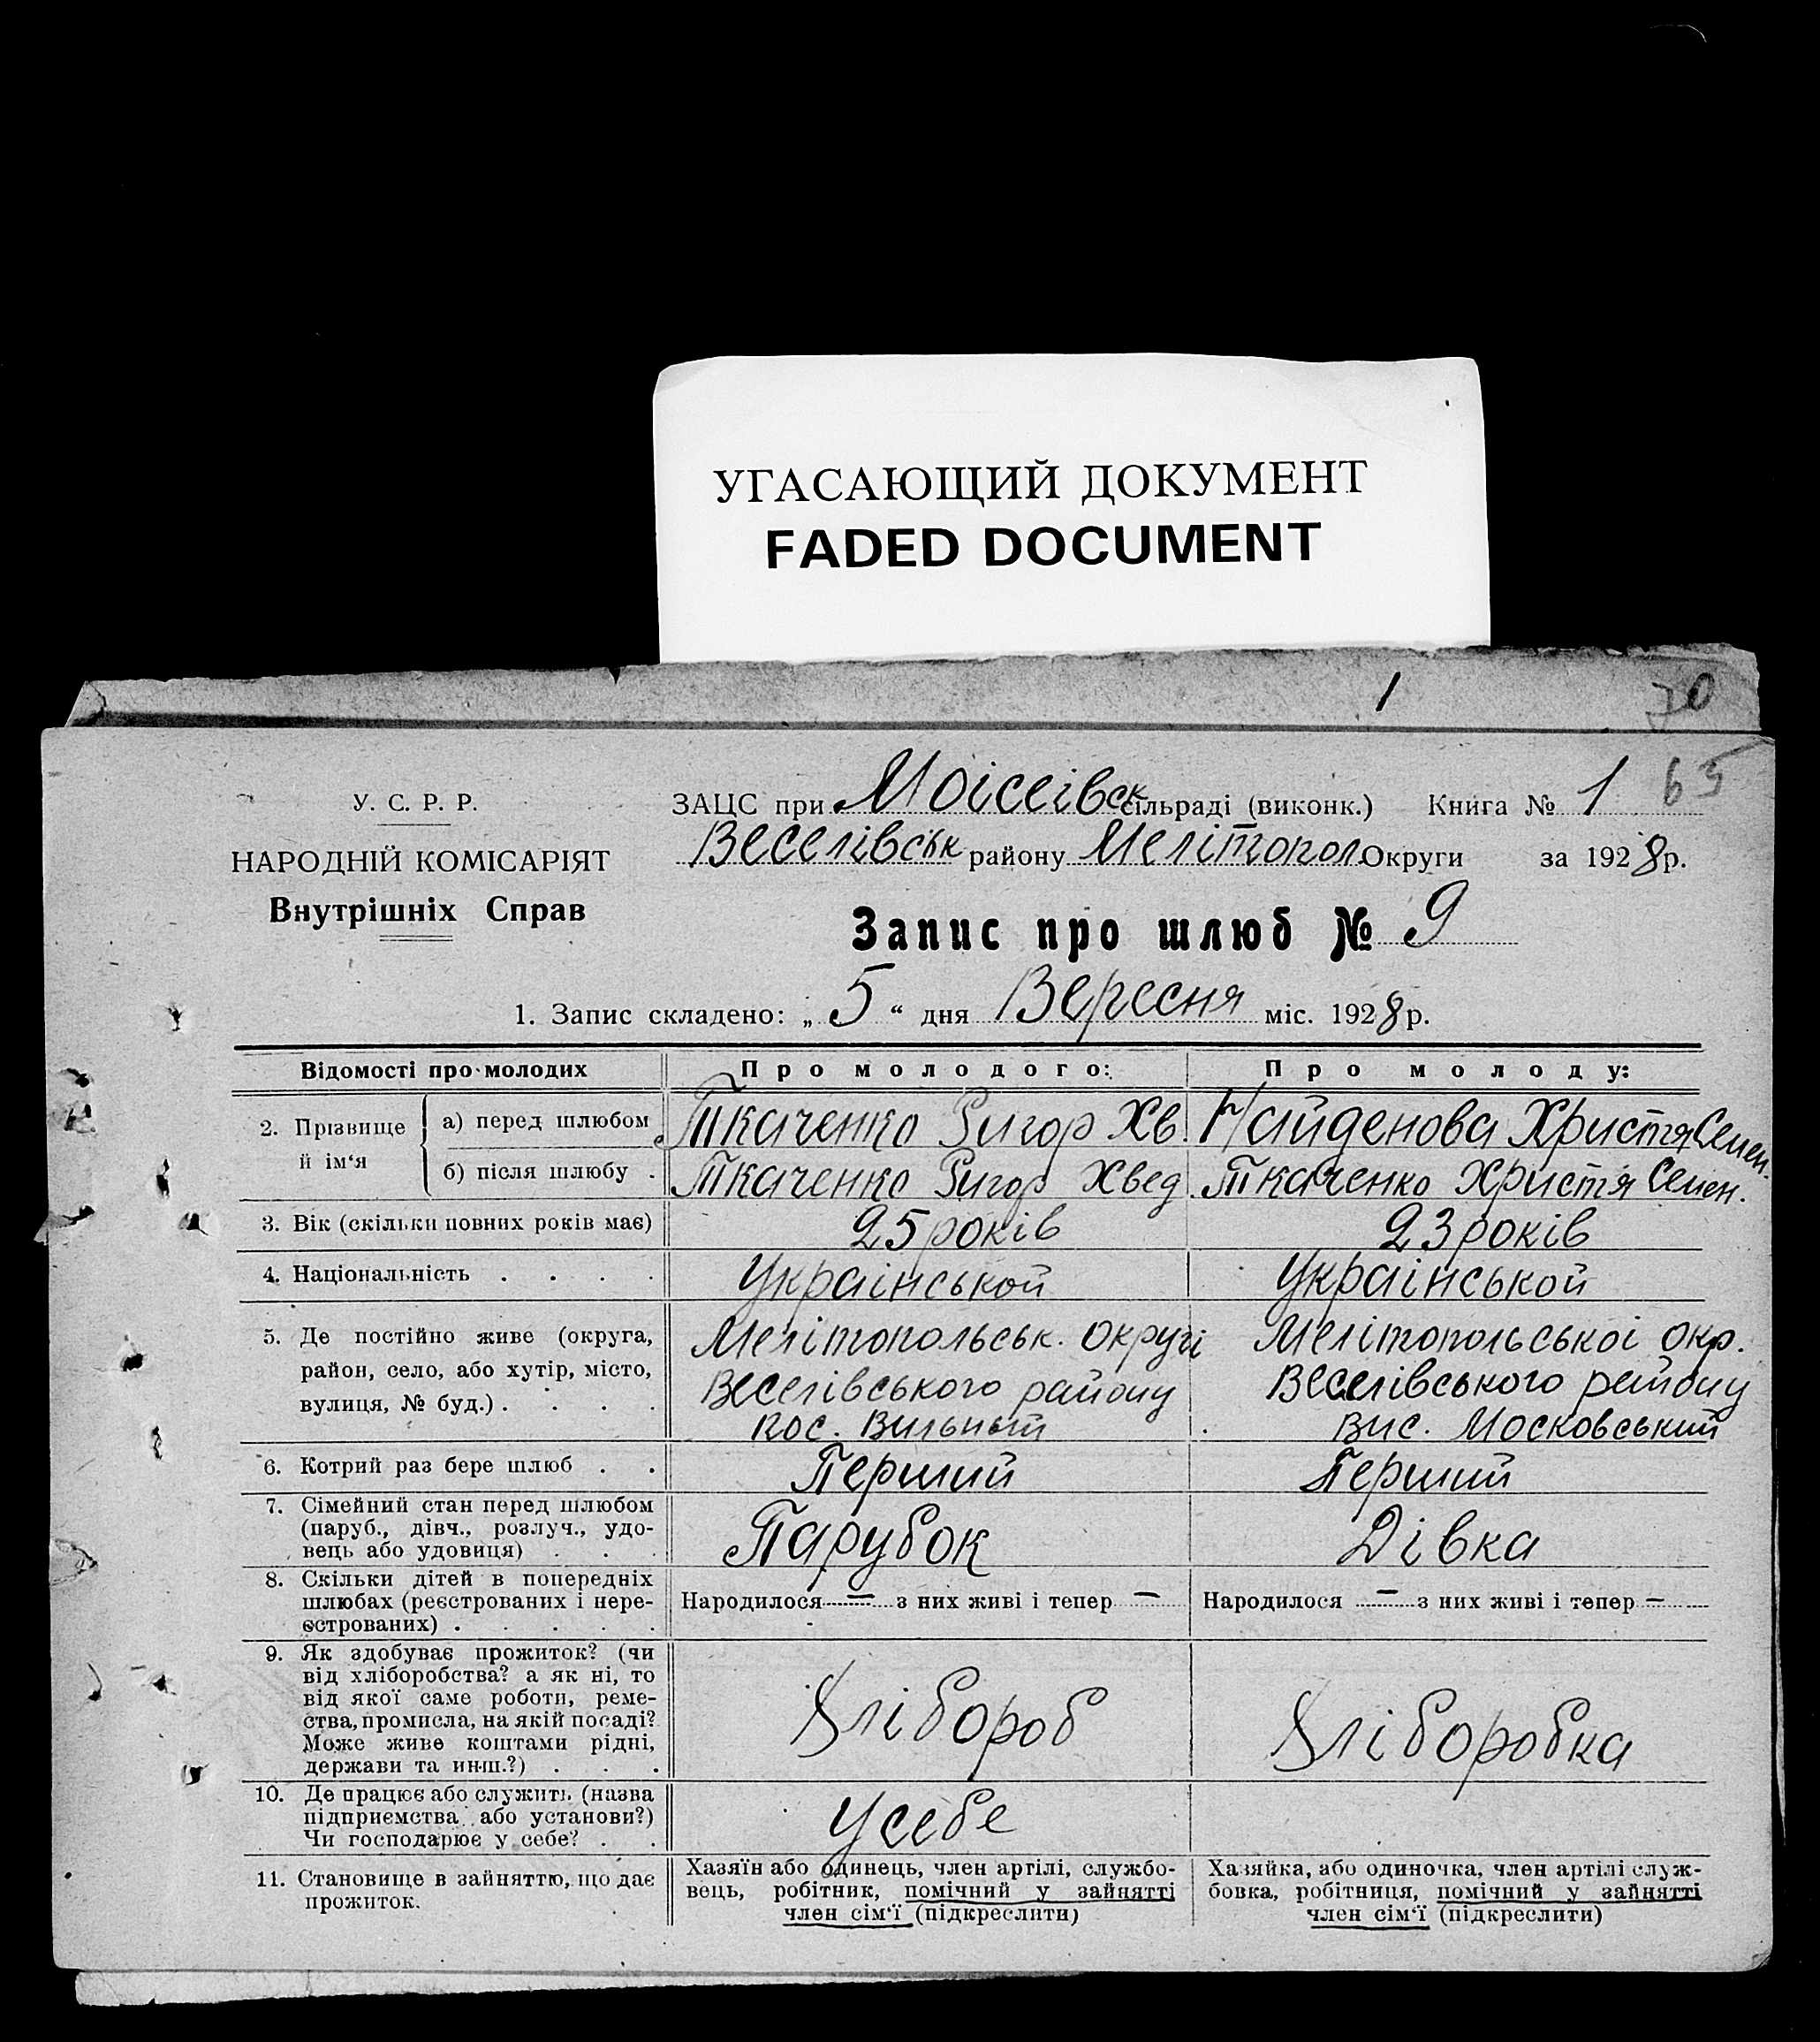 УГАСАЮЩИЙ ДОКУМЕНТ
FADED DOCUMENT
1 70
65
У. С. Р. Р.
НАРОДНІЙ КОМІСАРІЯТ
Внутрішніх Справ
ЗАЦС при Моісеівск сільраді (виконк.) Книга № 1
Веселівськ району Мелітопол. Округи за 1928 р.
Запис про шлюб № 9
1. Запис складено: „ 5 “ дня Вересня міс. 1928 р.
Відомості про молодих Про молодого: Про молоду:
2. Прізвище й ім‘я
а) перед шлюбом Ткаченко Григор Хв. Найденова Христя Семен.
б) після шлюбу . Ткаченко Григор Хвед. Ткаченко Христя Семен.
3. Вік (скільки повних років має) 25 років 23 років
4. Національність . . . . Украінськой Украінськой
5. Де постійно живе (округа, Мелітопольськ. округі Мелітопольськоі окр.
район, село, або хутір, місто, Веселівського району Веселівського району
вулиця, № буд.) . . . . пос. Вис. Московський
6. Котрий раз бере шлюб . . Перший Перший
7. Сімейний стан перед шлюбом
(паруб., дівч., розлуч., удо-
вець або удовиця) . . . Парубок Дівка
8. Скільки дітей в попередніх
шлюбах (реєстрованих і нере- Народилося — з них живі і тепер — Народилося — з них живі і тепер —
єстрованих) . . . . .
9. Як здобуває прожиток? (чи
від хліборобства? а як ні, то
від якої саме роботи, реме-
ства, промисла, на якій посаді? Хлібороб Хліборобка
Може живе коштами рідні,
держави та инш.?) . . .
10. Де працює або служить (назва
підприємства або установи?) Усебе
Чи господарює у себе? . .
11. Становище в зайняттю, що дає
прожиток.
Хазяїн або одинець, член артілі, службо-
вець, робітник, помічний у зайнятті
член сім‘ї (підкреслити)
Хазяйка, або одиночка, член артілі служ-
бовка, робітниця, помічний у зайнятті
член сім‘ї (підкреслити)